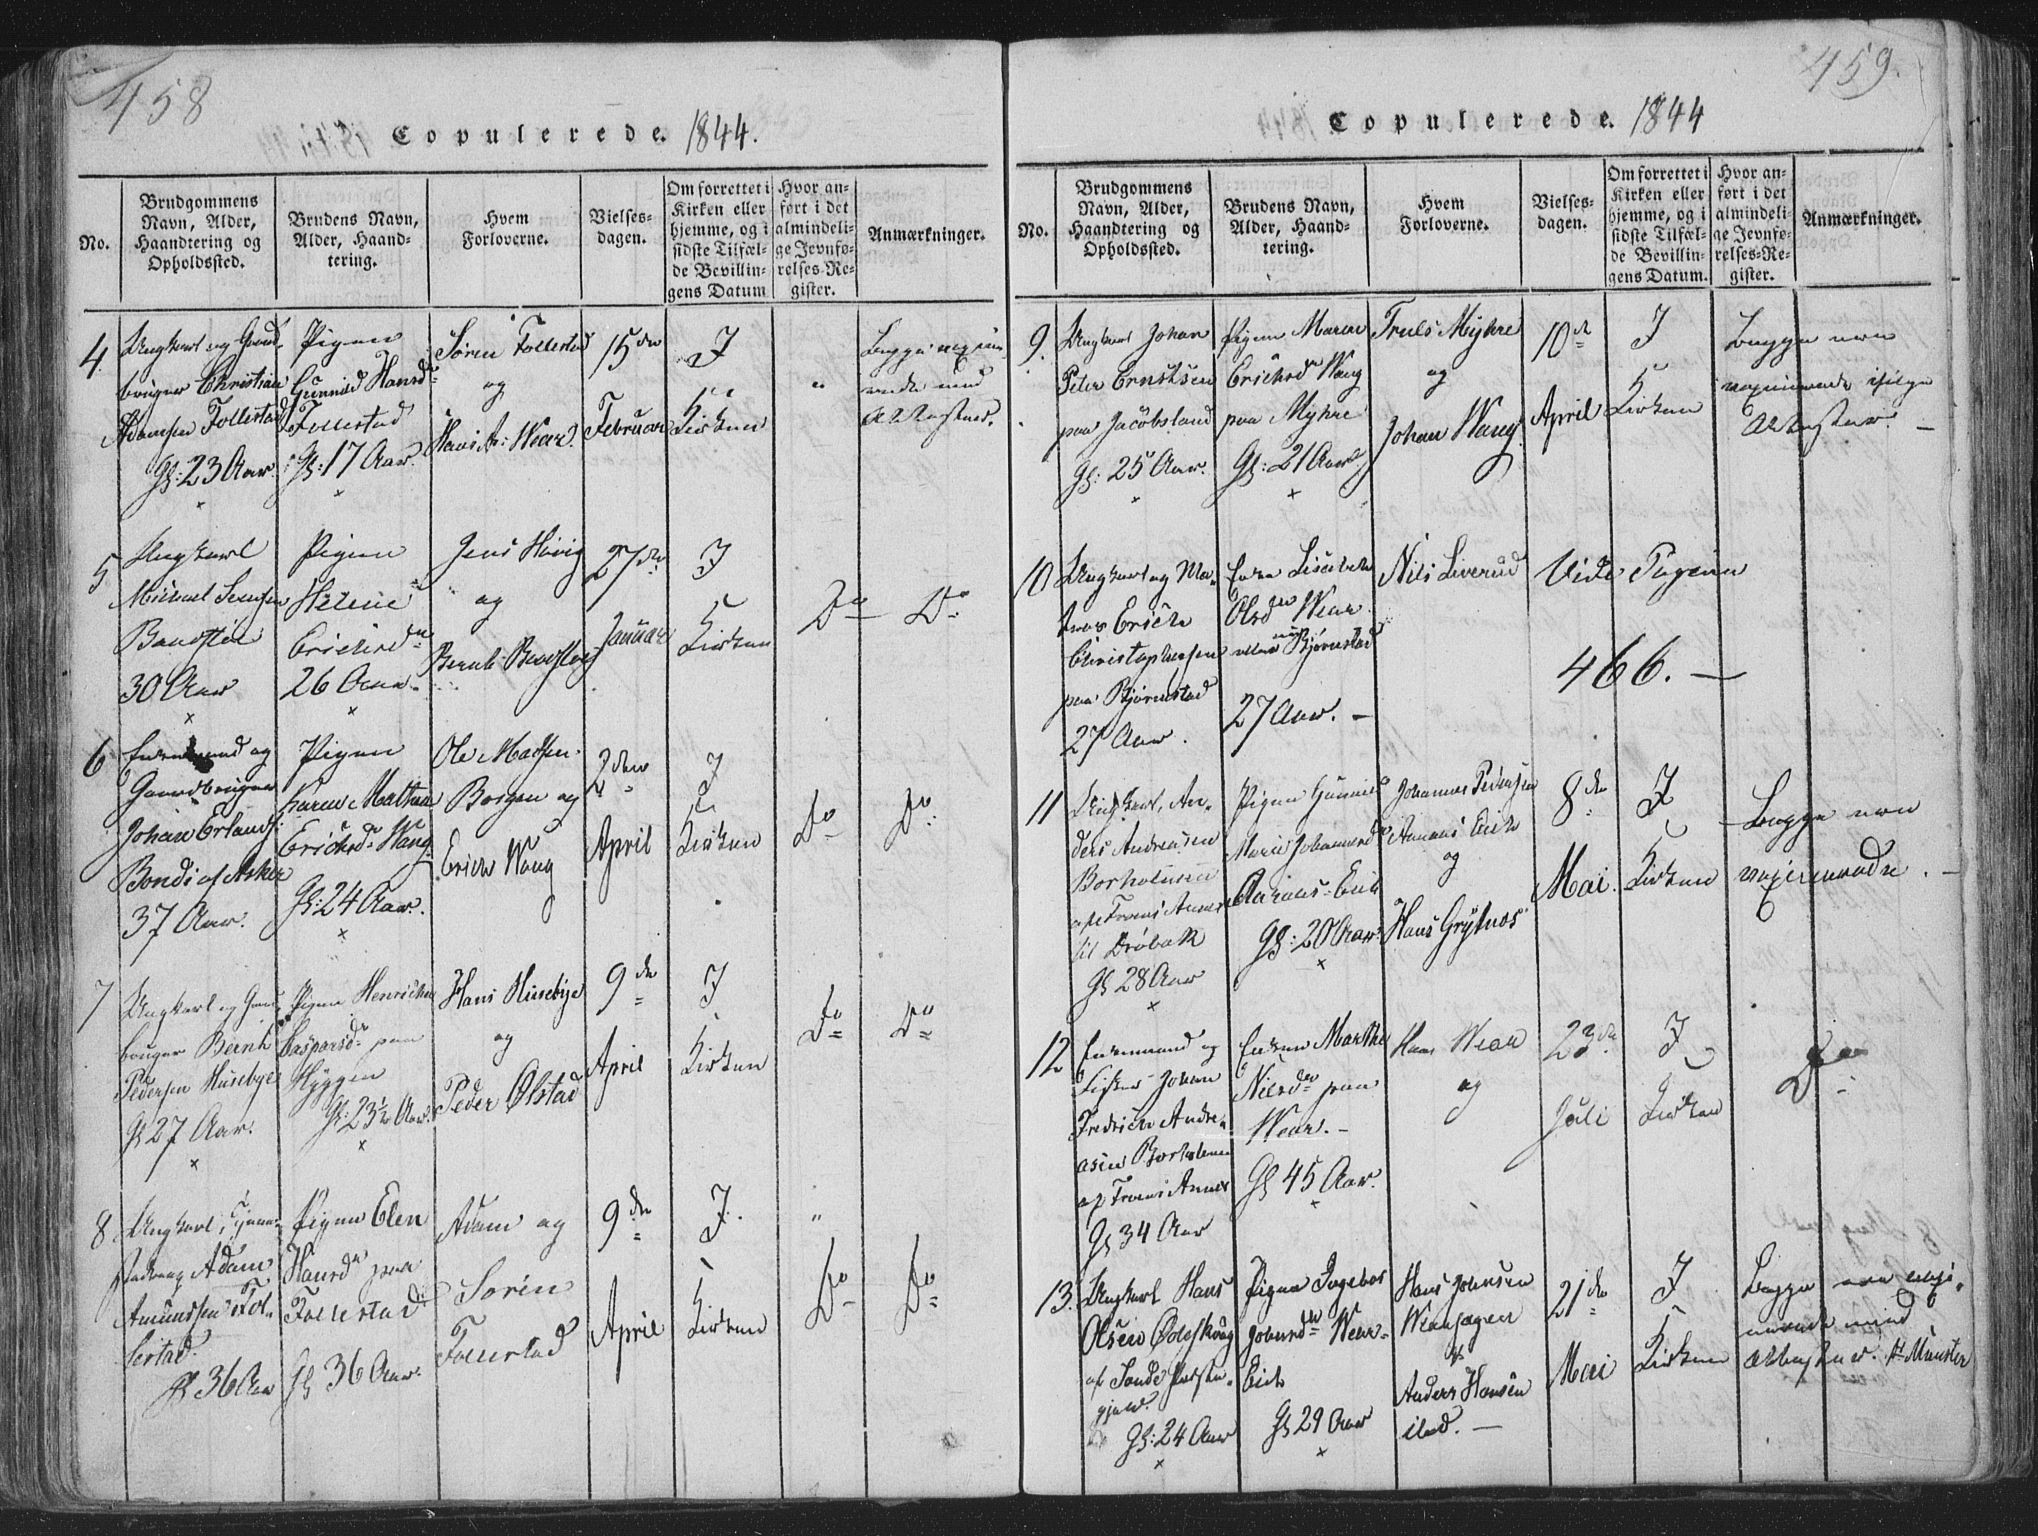 458
Copulerede. 1844.
No.
Brudgommens Navn, Alder, Haandtering og Opholdssted.
Brudens Navn, Alder, Haandtering.
Hvem Forloverne.
Vielsesdagen.
Om forrettet i Kirken eller hjemme, og i sidste Tilfælde Bevillingens Datum
Hvor anført i det almindelige Jevnførelses-Register.
Anmærkninger.
4
Ungkarl og Gaard-
bruger Christian
Adamsen Follestad
Gl: 23 Aar.
Pigen
Gunnild Hansdr
Follestad
Gl: 17 Aar.
Søren Follestad
og
Hans A: Wear.
15den
Februar
I
Kirken
"
Begge
med
Attester.
5
Ungkarl
Michael
30 Aar
Pigen
Helene
Erichsdr
26 Aar.
Jens Høvig
og
Bernt
27de
Januar
I
Kirken
Do
Do
6
Enkemand og
Gaardbruger
Johan Erlands:
Bondi af Asker
37 Aar.
Pigen
Karen Mathea
Erichsdr Wang.
Gl: 24 Aar.
Ole Madsen
Borgen og
Erich Wang
2den
April
I
Kirken
Do
Do
7
Ungkarl og Gaard
bruger Bernt
Pedersen Husebye
Gl 27 Aar.
Pigen Henriche
Caspersdr paa
Hyggen
Gl: 23½ Aar.
Hans Husebye
og
Peder Ølstad
9de
April
I
Kirken
Do
Do
8
Ungkarl,
Adam
Amundsen Fol-
lestad.
Gl 36 Aar
Pigen Elen
Hansdr paa
Follestad
Gl 36 Aar.
Adam og
Søren
Follestad
9de
April
I
Kirken
"
Do
Do
459.
Copulerede. 1844
No.
Brudgommens Navn, Alder, Haandtering og Opholdssted.
Brudens Navn, Alder, Haandtering.
Hvem Forloverne.
Vielsesdagen.
Om forrettet i Kirken eller hjemme, og i sidste Tilfælde Bevillingens Datum.
Hvor anført i det almindelige Jevnførelses-Register.
Anmærkninger.
9.
Ungkarl Johan
Peter Ernstsen
paa Jacobsland
Gl: 25 Aar.
Pigen Maren
Erichsdr Wang
paa Myhre
Gl: 21 Aar
Truls Myhre
og
Johan Wang
10de
April
I
Kirken
Begge ere
vaxinerede ifølge
Attester.
10
Ungkarl og Ma-
tros Erich
Christophersen
paa Bjørnstad
27 Aar.
Enke Lisebeth
Olsdr Wear
eller Bjørnstad
27 Aar.
Nils Liverud
Vide Pagina
466.
11
Ungkarl, An-
ders Andreasen
Borholmen
af Troms Annex
til Drøbak
Gl 28 Aar
Pigen Gunnild
Marie Johannesdr
Aaraas-Eich
Gl: 20 Aar.
Johannes Pedersen
Aaraas Eich
og
Hans Grytnes
8de
Mai.
I
Kirken
Begge ere
vaxinerede.
12
Enkemand og
Fisker Johan
Fredrich Andre-
asen Borholmen
af Troms Annex
Gl 34 Aar
Enken Marthe
Nilsdr paa
Wear.
Gl 45 Aar.
Hans Wear
og
23de
Juli
I
Kirken
Do
13.
Ungkarl Hans
Olsen Odeskoug
af Sande Præste-
gjæld.
Gl: 24 Aar
Pigen Ingebor
Johnsdr Wear-
Eich
Gl 29 Aar
Hans Johnsen
Wearhagen
og
Anders Hansen
ibid.
21de
Mai
I
Kirken
Begge ere vaxi-
nerede med
Attester. H Münster